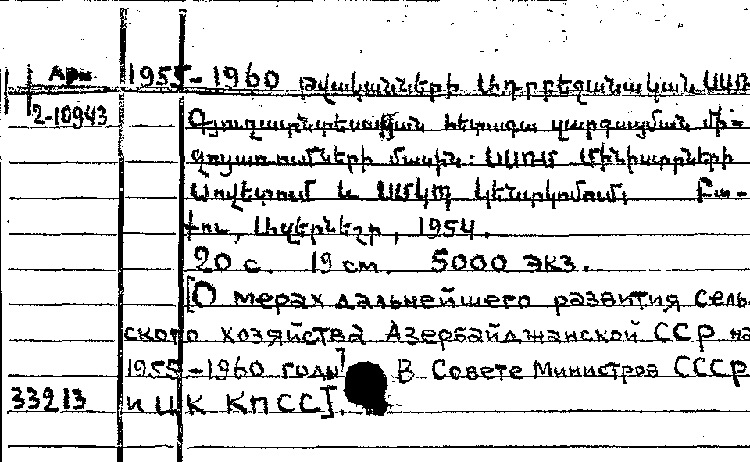 Арм 1955-1960 թվականների Ադրբեջանական ՍՍՌ
2-10943 Գյուղատնտեսության հետագա զարգացման մի-
ջոցառումների մասին: ՍՍՌՄ Մինիստրների
Սովետում և ՍՄԿՊ կենտկոմում: Բա-
քու, Ազերնեշր, 1954.
20 с. 19 см. 5000 экз.
[О мерах дальнейшего развития сель-
ского хозяйства Азербайджанской ССР на
1955-1960 годы] В Совете Министров СССР
33213 и ЦК КПСС].